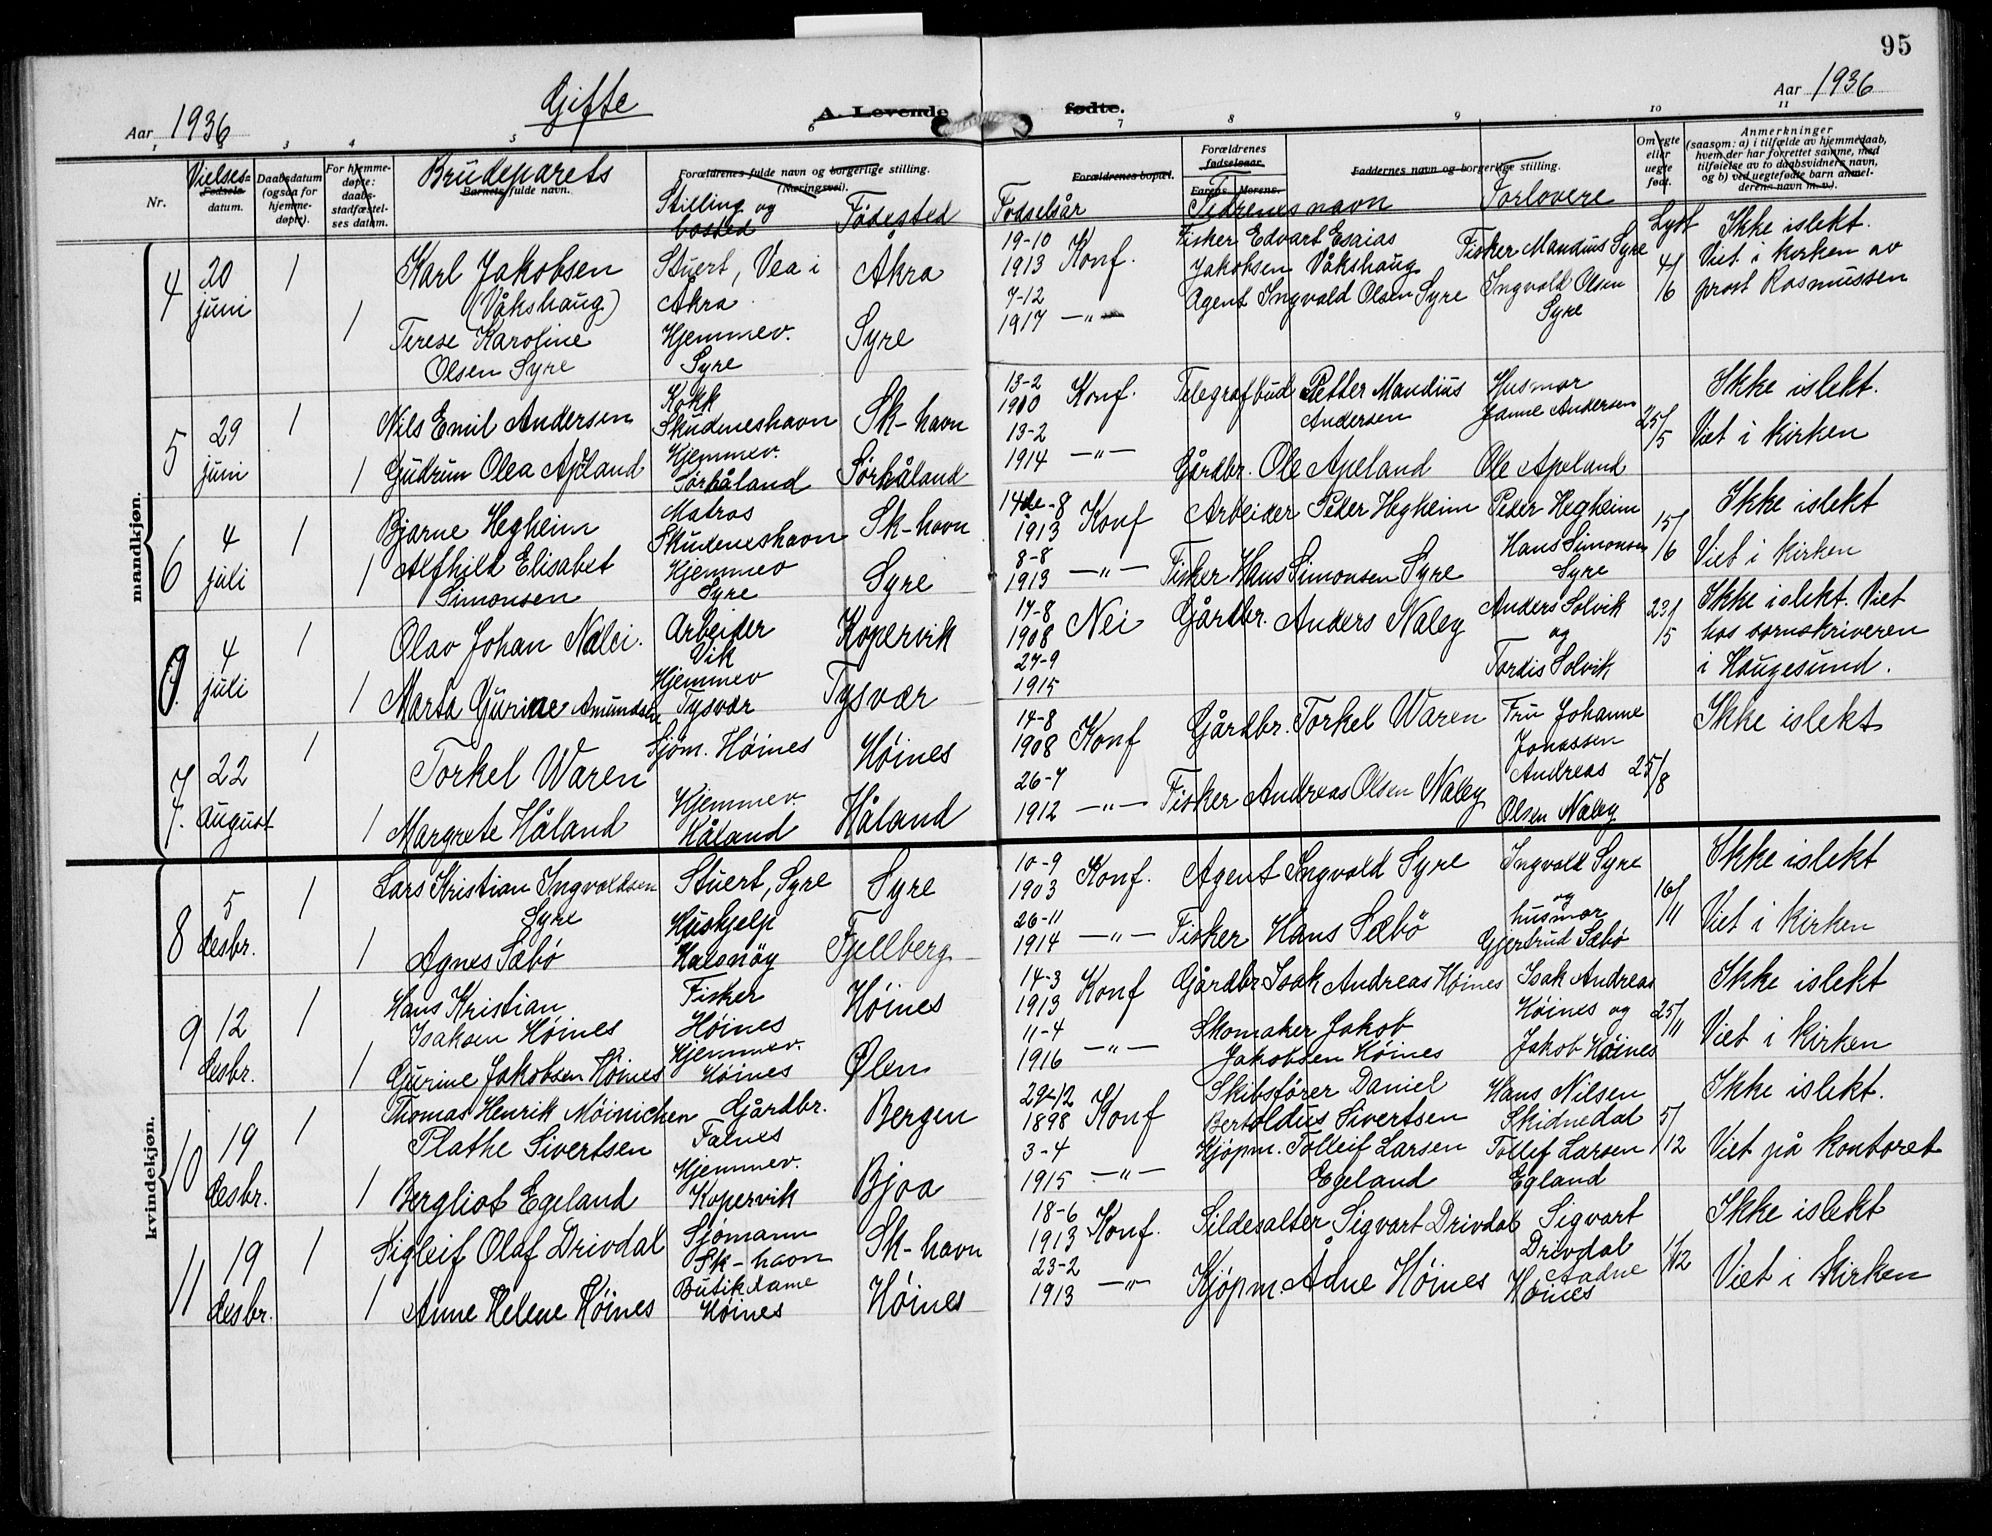 95
Gifte
A. Levende fødte.
Aar 1936
Aar 1936
1 2 3 4 5 6 7 8 9 10 11
Nr.
Vielses-
Fødsels-
datum.
Daabsdatum
(ogsaa for
hjemme-
døpte).
For hjemme-
døpte:
daabs-
stadfæstel-
ses datum.
Brudeparets
Barnets fulde navn.
Forældrenes fulde navn og borgerlige stilling.
(Næringsvei).
Stilling og
bosted
Fødested
Forældrenes bopæl.
Fødselsår
Forældrenes
fødselsaar.
Farens. Morens.
Fedrenes navn
Faddernes navn og borgerlige stilling.
Forlovere
Om egte
eller
uegte
født.
Lyst
Anmerkninger
(saasom: a) i tilfælde av hjemmedaab,
hvem der har forrettet samme, med
tilføielse av to daabsvidners navn,
og b) ved uegtefødte barn anmel-
derens navn m. v.).
mandkjøn.
4
20 juni
1
Karl Jakobsen
(Våkshaug)
Stuert, Vea i
Åkra
Åkra
19-10
1913
Konf.
Fisker Edvart Esaias
Jakobsen Våkshaug
Fisker Mandius Syre
4/6
Ikke islekt.
Viet i kirken av
prost Rasmussen
1
Terese Karoline
Olsen Syre
Hjemmev.
Syre
Syre
7-12
1917
—"—
Agent Ingvald Olsen Syre
Ingvald Olsen
Syre
5
29 juni
1
Nils Emil Andersen
Kokk
Skudeneshavn
Sk-havn
13-2
1910
Konf.
Telegrafbud Petter Mandius
Andersen
Husmor
Janne Andersen
25/5
Ikke islekt.
Viet i kirken
1
Gudrun Olea Apeland
Hjemmev.
Sørhåland
Sørhåland
13-2
1914
—"—
Gårdbr. Ole Apeland
Ole Apeland
6
4 juli
1
Bjarne Hegheim
Matros
Skudeneshavn
Sk-havn
14de-8
1913
Konf
Arbeider Peder Hegheim
Peder Hegheim
15/6
Ikke islekt
Viet i kirken
1
Alfhild Elisabet
Simonsen
Hjemmev
Syre
Syre
8-8
1913
—"—
Fisker Hans Simonsen Syre
Hans Simonsen
Syre
4 juli
1
Olav Johan Nalei.
Arbeider
Vik
Kopervik
17-8
1908
Nei
Gårdbr. Anders Naley
Anders Solvik
og
Tordis Solvik
23/5
Ikke islekt. Viet
hos sornskriveren
i Haugesund.
1
Marta Gurine Amundsen
Hjemmev
Tysvær
Tysvær
27-9
1915
7.
22 august
1
Torkel Waren
Sjøm. Høines
Høines
14-8
1908
Konf
Gårdbr. Torkel Waren
Fru Johanne
Jonassen
25/8
Ikke islekt
1
Margrete Håland
Hjemmev.
Håland
Håland
26-7
1912
—"—
Fisker Andreas Olsen Naley
Andreas
Olsen Naley
kvindekjøn.
8
5 desbr.
1
Lars Kristian Ingvaldsen
Syre
Stuert, Syre
Syre
10-9
1903
Konf.
Agent Ingvald Syre
Ingvald Syre
og
16/11
Ikke islekt
Viet i kirken
1
Agnes Sæbø
Huskjelp
Halsnøy
Fjellberg
26-11
1914
—"—
Fisker Hans Sæbö
husmor
Gjertrud Sæbø
9
12 desbr.
1
Hans Kristian
Isaksen Höines
Fisker
Höines
Höines
14-3
1913
Konf
Gårdbr Isak Andreas Höines
Isak Andreas
Höines og
25/11
Ikke islekt
Viet i kirken
1
Gurine Jakobsen Höines
Hjemmev.
Höines
Ølen
11-4
1916
—"—
Skomaker Jakob
Jakobsen Höines
Jakob Höines
10
19 desbr.
1
Thomas Henrik Møinichen
Plathe Sivertsen
Gårdbr.
Falnes
Bergen
29-12
1898
Konf
Skibsfører Daniel
Bertoldus Sivertsen
Hans Nilsen
Skidnedal
5/12
Ikke islekt.
Viet på kontoret
1
Bergliot Egeland
Hjemmev.
Kopervik
Bjoa
3-4
1915
—"—
Kjöpm. Tolleif Larsen
Egeland
Tollef Larsen
Egland
11
19 desbr.
1
Sigleif Olaf Drivdal
Sjømann
Sk-havn
Sk-havn
18-6
1913
Konf.
Sildesalter Sigvart Drivdal
Sigvart
Drivdal
1/12
Ikke islekt
Viet i kirken
1
Anne Helene Höines
Butikdame
Höines
Höines
23-2
1913
—"—
Kjöpm. Ådne Höines
Aadne
Höines